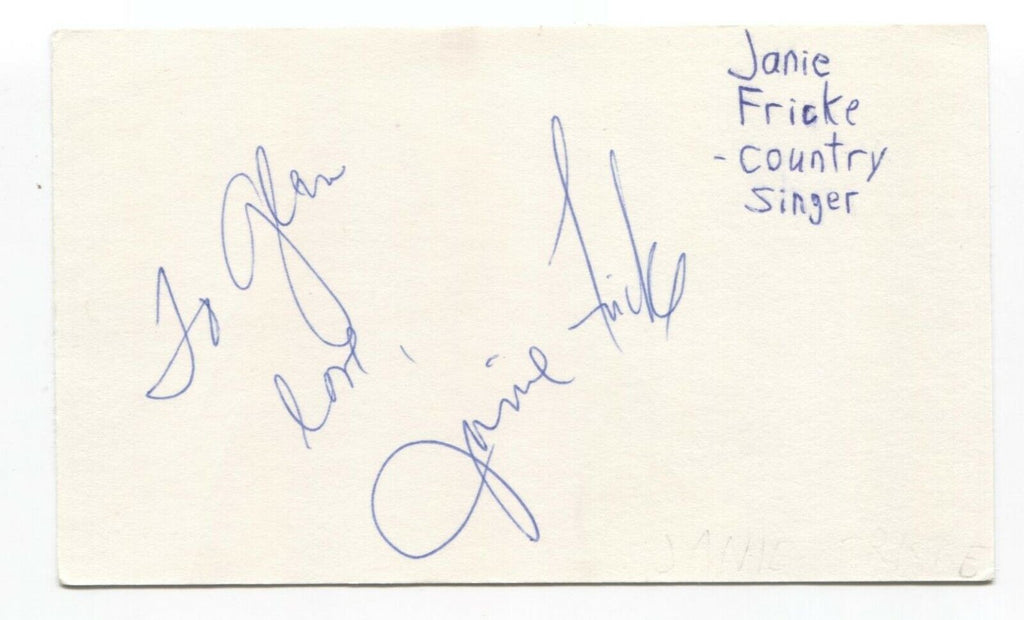 Janie
Fricke
- country
singer
To Glen
love,
Janie Fricke
JANIE FRICKE